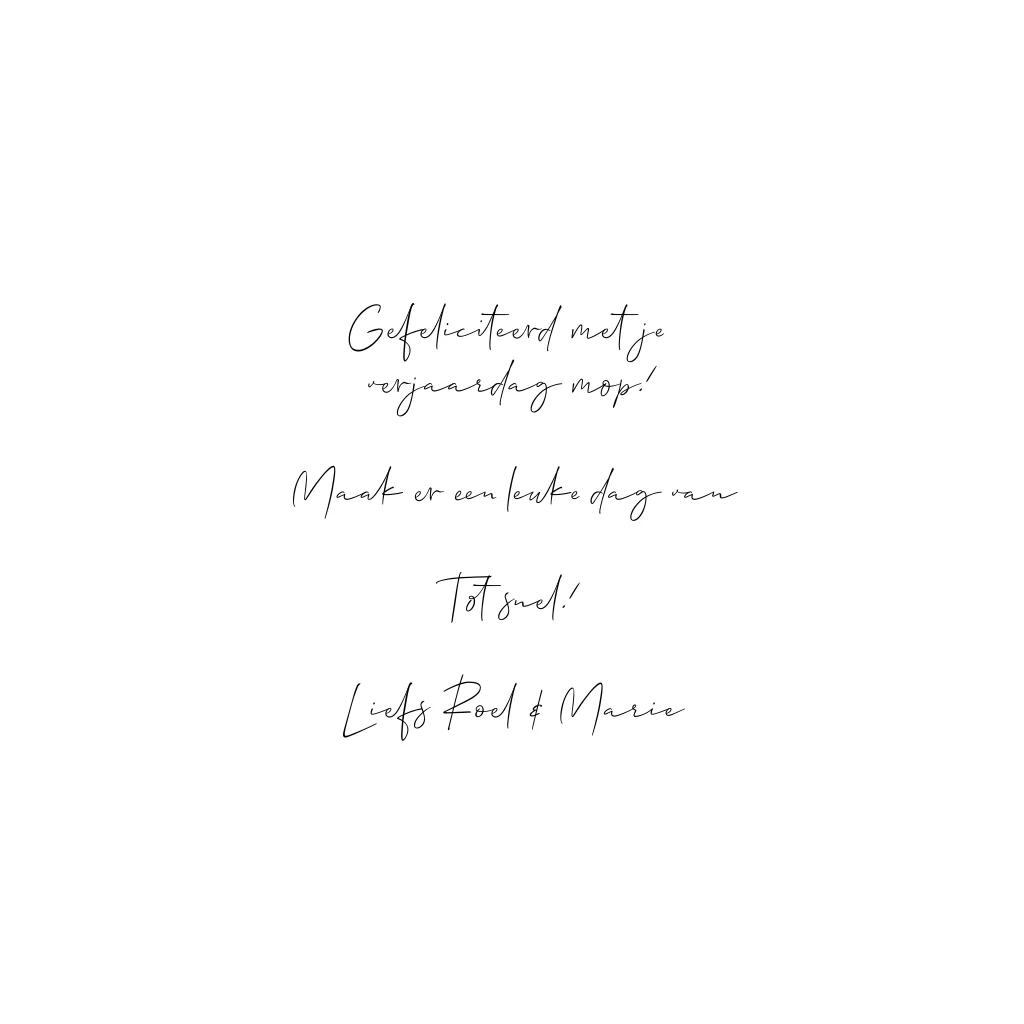 Gefeliciteerd met je
verjaardag mop!
Maak er een leuke dag van
Tot snel!
Liefs Roel & Marie